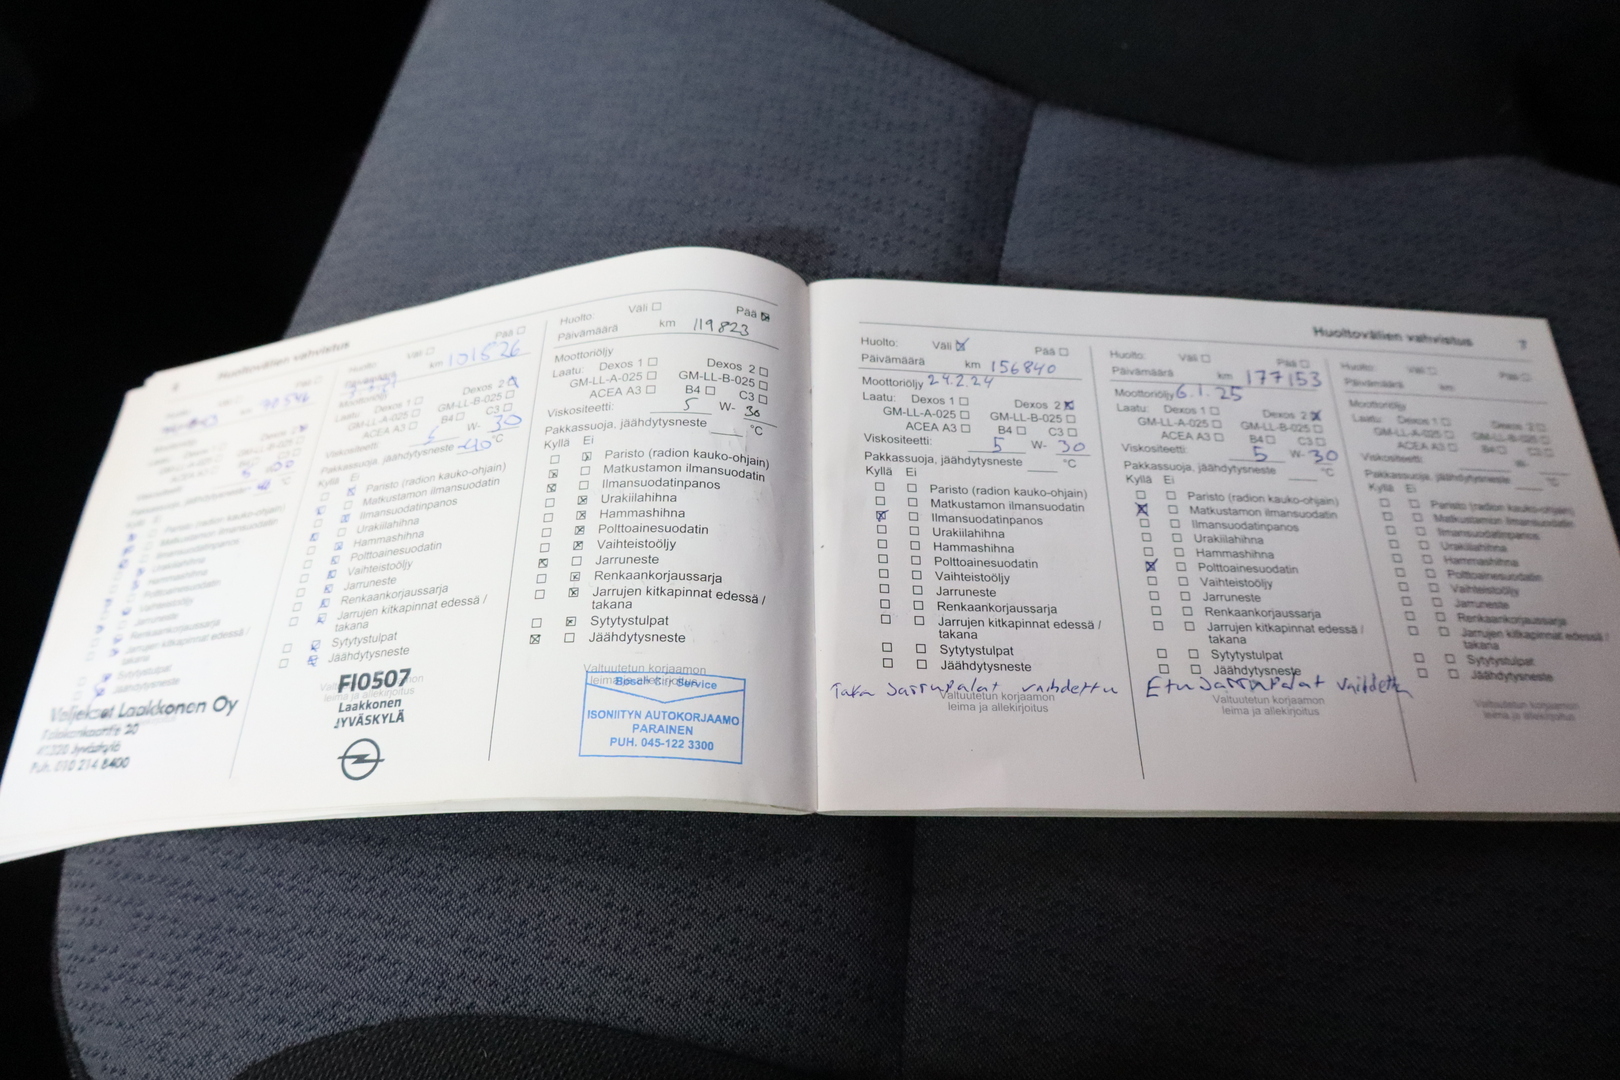 Huoltovälien vahvistus
70546
Valjekset Laakkonen Oy
41320 Jyväskylä
Puh. 010 214 8400
Huolto: Väli ☐ Pää ☐
km 101526
Moottoriöljy
Laatu: Dexos 1 ☐ Dexos 2 ☒
GM-LL-A-025 ☐ GM-LL-B-025 ☐
ACEA A3 ☐ B4 ☐ C3 ☐
Viskositeetti: 5 W- 30
Pakkassuoja, jäähdytysneste -40 °C
Kyllä Ei
☐ ☒ Paristo (radion kauko-ohjain)
☒ ☐ Matkustamon ilmansuodatin
☐ ☒ Ilmansuodatinpanos
☒ ☐ Urakiilahihna
☐ ☒ Hammashihna
☐ ☒ Polttoainesuodatin
☐ ☒ Vaihteistoöljy
☐ ☒ Jarruneste
☐ ☒ Renkaankorjaussarja
☐ ☒ Jarrujen kitkapinnat edessä /
takana
☐ ☒ Sytytystulpat
☐ ☒ Jäähdytysneste
leima ja allekirjoitus
FI0507
Laakkonen
JYVÄSKYLÄ
Huolto: Väli ☐ Pää ☒
Päivämäärä km 119823
Moottoriöljy
Laatu: Dexos 1 ☐ Dexos 2 ☐
GM-LL-A-025 ☐ GM-LL-B-025 ☐
ACEA A3 ☐ B4 ☐ C3 ☐
Viskositeetti: 5 W- 30
Pakkassuoja, jäähdytysneste ___ °C
Kyllä Ei
☐ ☒ Paristo (radion kauko-ohjain)
☒ ☐ Matkustamon ilmansuodatin
☒ ☐ Ilmansuodatinpanos
☐ ☒ Urakiilahihna
☐ ☒ Hammashihna
☐ ☒ Polttoainesuodatin
☐ ☒ Vaihteistoöljy
☒ ☐ Jarruneste
☐ ☒ Renkaankorjaussarja
☐ ☒ Jarrujen kitkapinnat edessä /
takana
☐ ☒ Sytytystulpat
☒ ☐ Jäähdytysneste
Valtuutetun korjaamon
leima ja allekirjoitus
Bosch Car Service
ISONIITYN AUTOKORJAAMO
PARAINEN
PUH. 045-122 3300
Huoltovälien vahvistus 7
Huolto: Väli ☒ Pää ☐
Päivämäärä km 156840
Moottoriöljy 24.2.24
Laatu: Dexos 1 ☐ Dexos 2 ☒
GM-LL-A-025 ☐ GM-LL-B-025 ☐
ACEA A3 ☐ B4 ☐ C3 ☐
Viskositeetti: 5 W- 30
Pakkassuoja, jäähdytysneste ___ °C
Kyllä Ei
☐ ☐ Paristo (radion kauko-ohjain)
☐ ☐ Matkustamon ilmansuodatin
☒ ☐ Ilmansuodatinpanos
☐ ☐ Urakiilahihna
☐ ☐ Hammashihna
☐ ☐ Polttoainesuodatin
☐ ☐ Vaihteistoöljy
☐ ☐ Jarruneste
☐ ☐ Renkaankorjaussarja
☐ ☐ Jarrujen kitkapinnat edessä /
takana
☐ ☐ Sytytystulpat
☐ ☐ Jäähdytysneste
Taka Jarrupalat vaihdettu
Valtuutetun korjaamon
leima ja allekirjoitus
Huolto: Väli ☐ Pää ☐
Päivämäärä km 177153
Moottoriöljy 6.1.25
Laatu: Dexos 1 ☐ Dexos 2 ☒
GM-LL-A-025 ☐ GM-LL-B-025 ☐
ACEA A3 ☐ B4 ☐ C3 ☐
Viskositeetti: 5 W- 30
Pakkassuoja, jäähdytysneste ___ °C
Kyllä Ei
☐ ☐ Paristo (radion kauko-ohjain)
☒ ☐ Matkustamon ilmansuodatin
☐ ☐ Ilmansuodatinpanos
☐ ☐ Urakiilahihna
☐ ☐ Hammashihna
☒ ☐ Polttoainesuodatin
☐ ☐ Vaihteistoöljy
☐ ☐ Jarruneste
☐ ☐ Renkaankorjaussarja
☐ ☐ Jarrujen kitkapinnat edessä /
takana
☐ ☐ Sytytystulpat
☐ ☐ Jäähdytysneste
Etu Jarrupalat vaihdettu
Valtuutetun korjaamon
leima ja allekirjoitus
Huolto: Väli ☐ Pää ☐
Päivämäärä km
Moottoriöljy
Laatu: Dexos 1 ☐ Dexos 2 ☐
GM-LL-A-025 ☐ GM-LL-B-025 ☐
ACEA A3 ☐ B4 ☐ C3 ☐
Viskositeetti: W-
Pakkassuoja, jäähdytysneste ___ °C
Kyllä Ei
☐ ☐ Paristo (radion kauko-ohjain)
☐ ☐ Matkustamon ilmansuodatin
☐ ☐ Ilmansuodatinpanos
☐ ☐ Urakiilahihna
☐ ☐ Hammashihna
☐ ☐ Polttoainesuodatin
☐ ☐ Vaihteistoöljy
☐ ☐ Jarruneste
☐ ☐ Renkaankorjaussarja
☐ ☐ Jarrujen kitkapinnat edessä /
takana
☐ ☐ Sytytystulpat
☐ ☐ Jäähdytysneste
Valtuutetun korjaamon
leima ja allekirjoitus